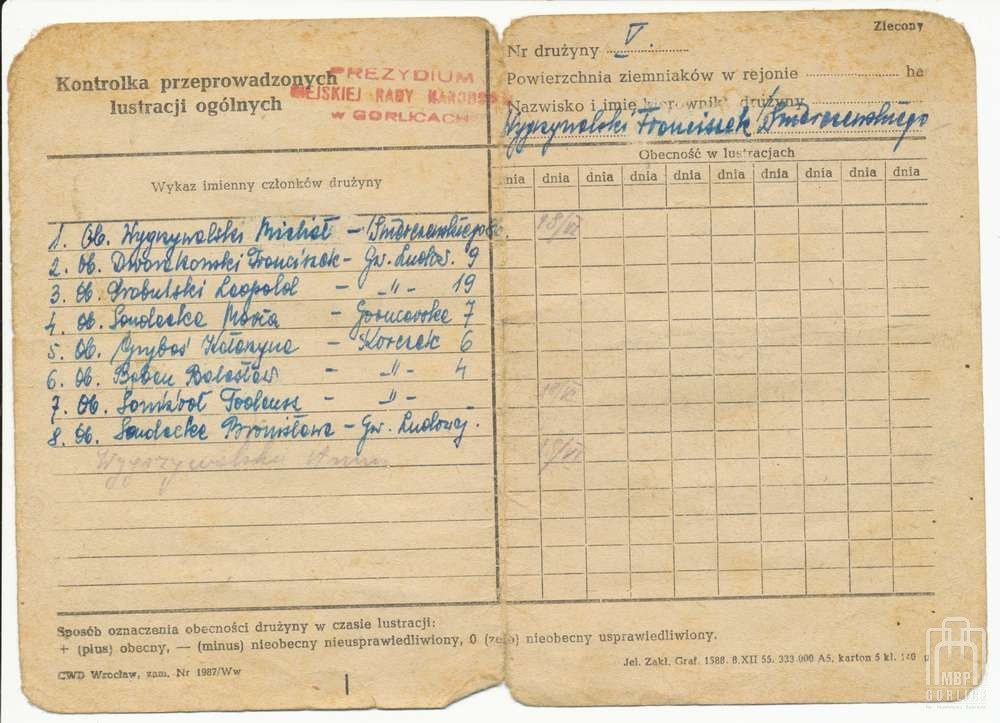 Kontrolka przeprowadzonych
lustracji ogólnych
PREZYDIUM
MIEJSKIEJ RADY NARODOWEJ
w GORLICACH
Wykaz imienny członków drużyny
1. Ob. Wygrzywalski Michał – Smereczewskiego
2. Ob. Dworakowski Franciszek – Gw. Ludow. 9
3. Ob. Leopold – -"- 19
4. Ob. Sandecka Maria – Garncarska 7
5. Ob. Gryboś Katarzyna – Korczak 6
6. Ob. Bolesław – -"- 4
7. Ob. Tadeusz – -"-
8. Ob. Sandecka Bronisława – Gw. Ludowej.
Wygrzywalska Anna
Zlecony
Nr drużyny V.
Powierzchnia ziemniaków w rejonie ha
Nazwisko i imię kierownika drużyny
Wygrzywalski Franciszek
Obecność w lustracjach
dnia dnia dnia dnia dnia dnia dnia dnia dnia
18/VI
18/VI
Sposób oznaczenia obecności drużyny w czasie lustracji:
+ (plus) obecny, — (minus) nieobecny nieusprawiedliwiony, 0 (zero) nieobecny usprawiedliwiony.
CWD Wrocław, zam. Nr 1987/Ww
Jel. Zakł. Graf. 1588. 8.XII 55. 333 000 A5, karton 5 kl. 140 g
MBP
GORLICE